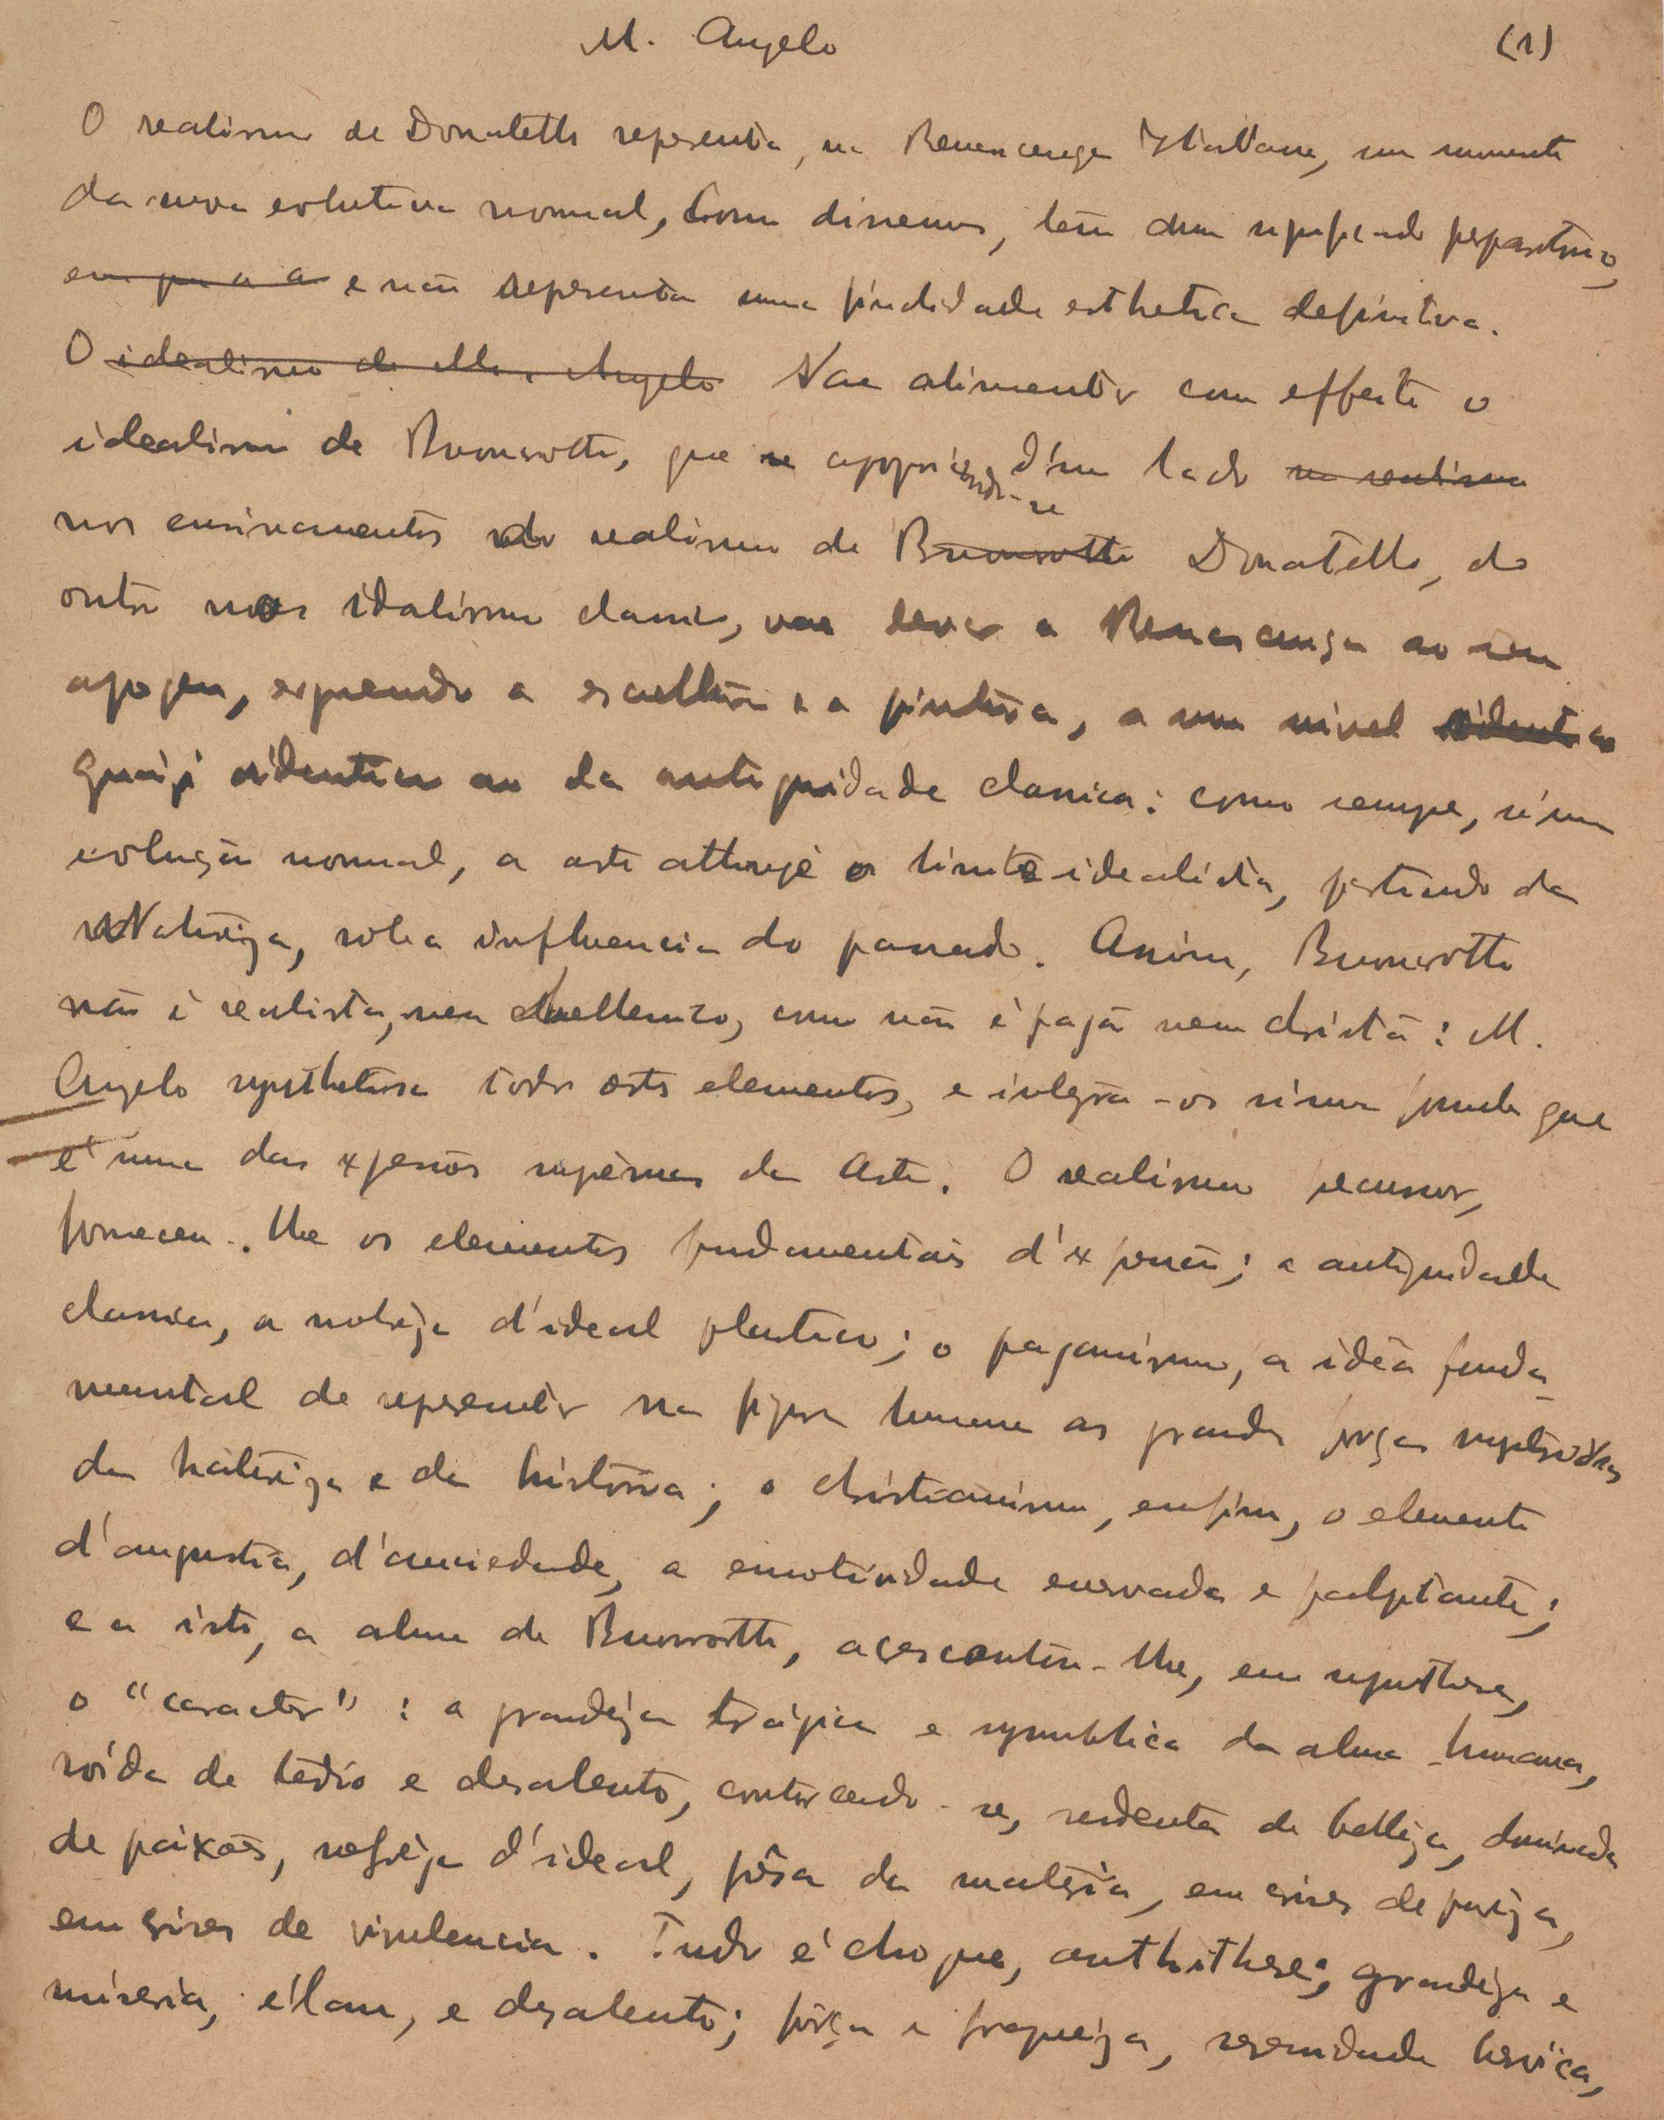 M. Angelo (1)
O realismo de Donatello representa, na Renascença Italiana, um momento
da nova evolutiva normal, como dissemos, tem um significado preparatorio,
em que a a e não representa uma finalidade esthetica definitiva.
O idealismo de M. Angelo Vae alimentar com effeito o
idealismo de Buonarotti, que se appoiando-se d'um lado no realismo
nos ensinamentos do realismo de Buonarotti Donatello, do
outro nos idalismo classico, vae levar a Renascença ao seu
apogeu, erguendo a escultura e a pintura, a um nivel identico
quasi identico ao da antiguidade classica: como sempre, n'uma
evolução normal, a arte attinge o limite idealista, partindo da
Natureza, sob a influencia do passado. Assim, Buonarotti
não é realista, nem hellenico, como não é pagão nem christão: M.
Angelo synthetisa todos estes elementos, e integra-os n'uma formula que
é uma das expressões supremas da Arte. O realismo precursor,
forneceu-lhe os elementos fundamentais d'expressão; a antiguidade
classica, a nobreza d'ideal plastico; o paganismo, a idéa funda-
mental de representar na figura humana as grandes forças mysteriosas
da natureza e da historia; o christianismo, enfim, o elemento
d'angustia, d'anciedade, a emotividade enervada e palpitante;
e a isto, a alma de Buonarotti, acrescentou-lhe, em synthese,
o "caracter": a grandeza trágica e symbolica da alma humana,
roída de tedio e desalento, contorcendo-se, sedenta de belleza, dominada
de paixões, refrega d'ideal, prêsa da materia, em crises de pureza,
em crises de virulencia. Tudo é choque, anthithese; grandeza e
miseria, élan, e desalento; fôrça e fraqueza, serenidade heroica,